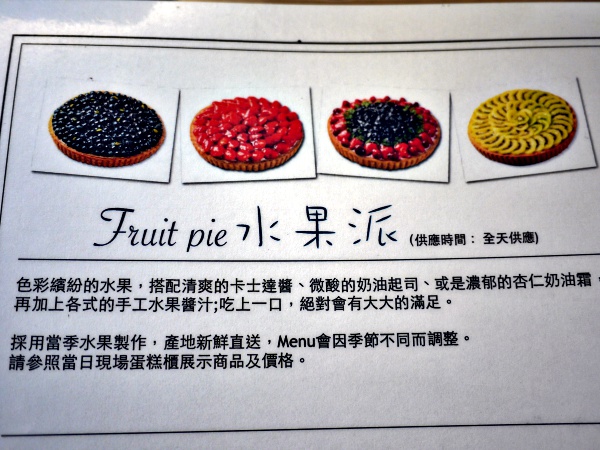 Fruit pie 水果派 (供應時間： 全天供應)
色彩繽紛的水果，搭配清爽的卡士達醬、微酸的奶油起司、或是濃郁的杏仁奶油霜，
再加上各式的手工水果醬汁;吃上一口，絕對會有大大的滿足。
採用當季水果製作，產地新鮮直送，Menu會因季節不同而調整。
請參照當日現場蛋糕櫃展示商品及價格。